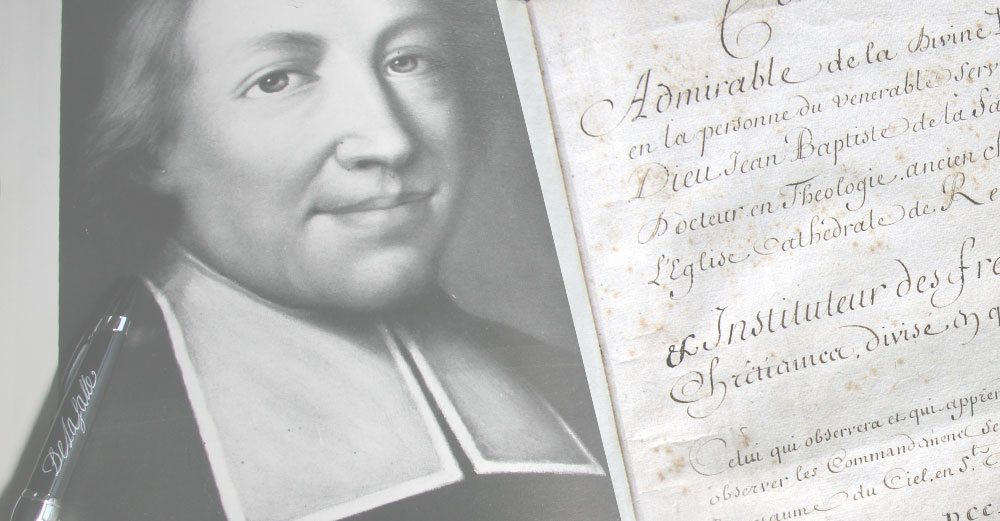 Admirable de la Divine
en la personne du venerable Serv
Dieu Jean Baptiste de la Sa
Docteur en Theologie, ancien ch
l'Eglise Cathédrale de Re
& Instituteur des fre
Chrétiennes, divisé en q
Celui qui observera et qui appren
observer les Commandemens se
du Ciel, en St.
De La Salle